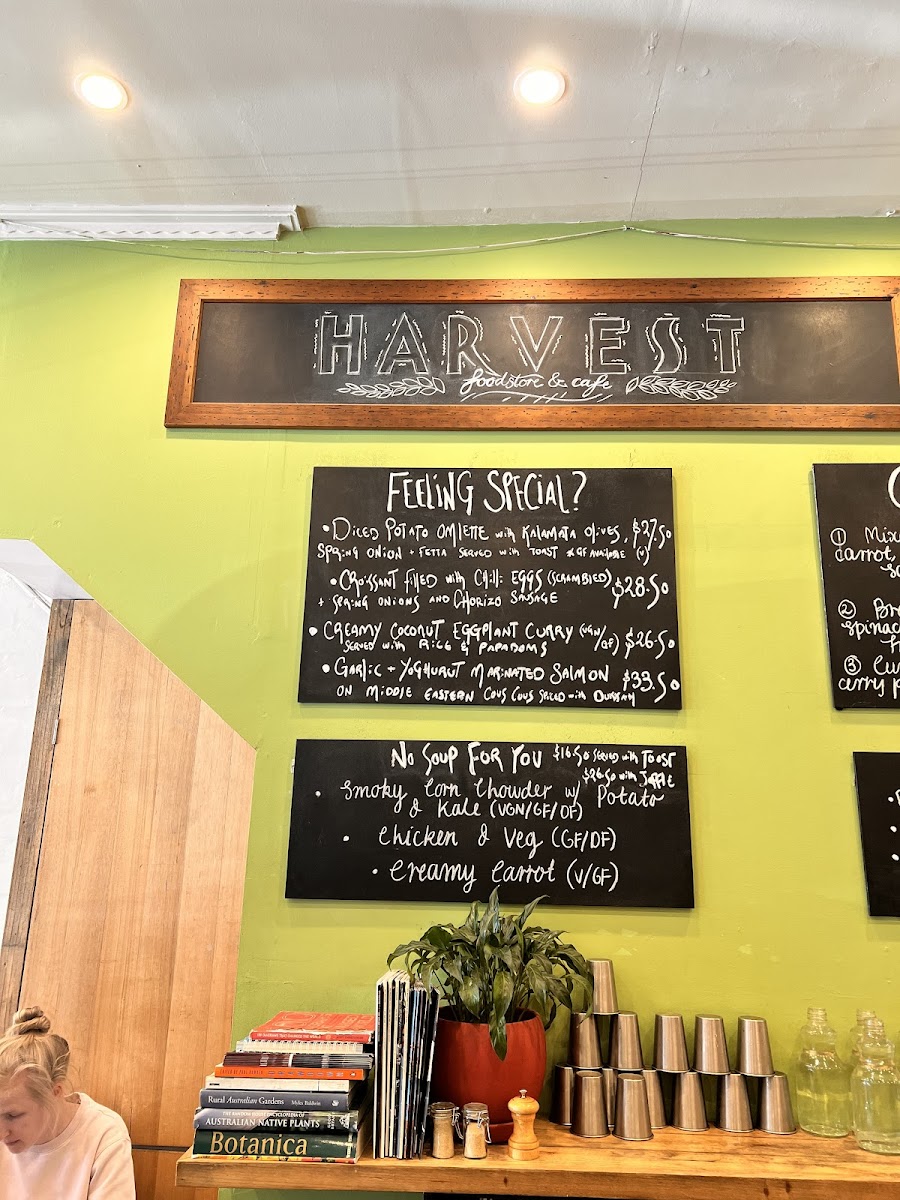 HARVEST
foodstore & cafe
FEELING SPECIAL?
• DICED POTATO OMLETTE with KALAMATA OLIVES, $27.50
SPRING ONION + FETTA SERVED WITH TOAST *GF AVAILABLE (V)
• CROISSANT filled with CHILLI EGGS (SCRAMBLED) $28.50
+ SPRING ONIONS AND CHORIZO SAUSAGE
• CREAMY COCONUT EGGPLANT CURRY (VGN/GF) $26.50
SERVED with RICE & PAPADOMS
• GARLIC + YOGHURUT MARINATED SALMON $33.50
ON MIDDLE EASTERN COUS COUS SPICED with DUKKAH
NO SOUP FOR YOU $16.50 SERVED with TOAST
$26.50 with JAFFLE
• Smoky Corn Chowder w/ Potato
& Kale (VGN/GF/DF)
• Chicken & Veg (GF/DF)
• Creamy Carrot (V/GF)
① Mix
carrot,
② Br
spinac
③ Cu
curry p
Rural Australian Gardens Myles Baldwin
THE RANDOM HOUSE ENCYCLOPEDIA OF
AUSTRALIAN NATIVE PLANTS
Botanica